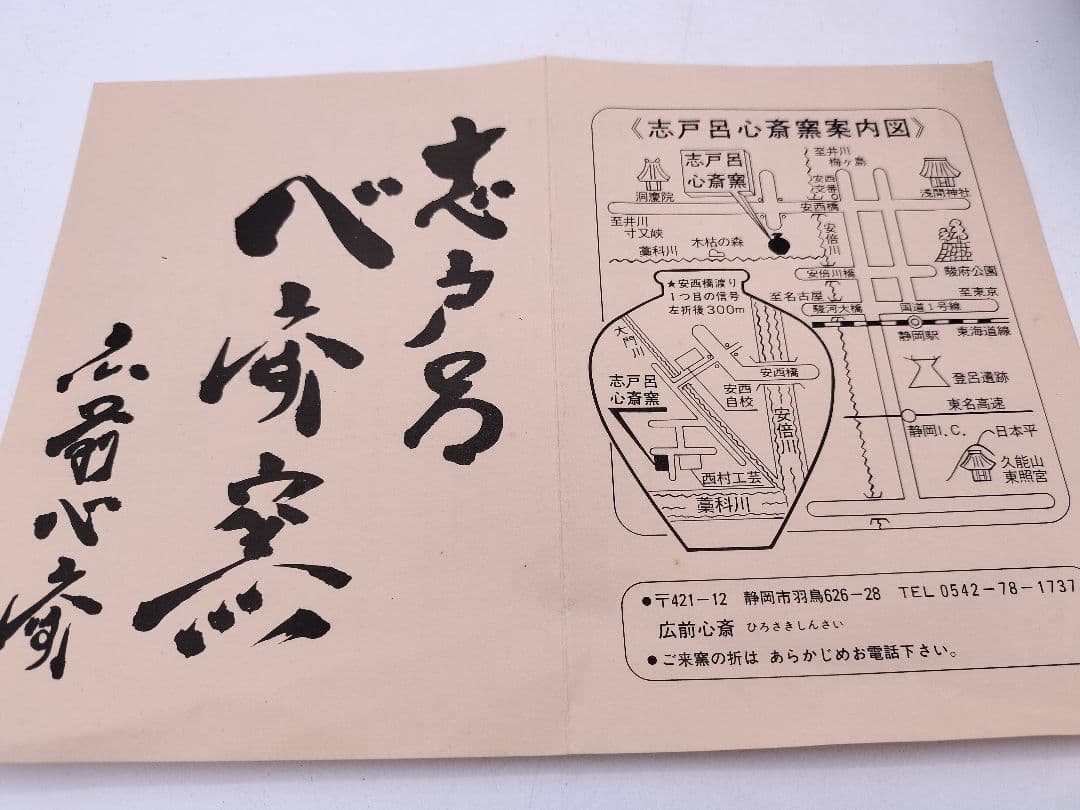 志戸呂
心斎窯
広前心斎
《志戸呂心斎窯案内図》
志戸呂
心斎窯
至井川
梅ヶ島
洞慶院
安西
交番
浅間神社
安西橋
至井川
寸又峡
藁科川
木枯の森
安倍川
安倍川橋
駿府公園
至名古屋
至東京
駿河大橋
国道1号線
静岡駅
東海道線
登呂遺跡
東名高速
静岡I.C.
日本平
久能山
東照宮
★安西橋渡り
1つ目の信号
左折後300m
大門川
安西橋
志戸呂
心斎窯
安西
自校
安倍川
西村工芸
藁科川
●〒421-12 静岡市羽鳥626-28 TEL 0542-78-1737
広前心斎 ひろさきしんさい
●ご来窯の折は あらかじめお電話下さい。